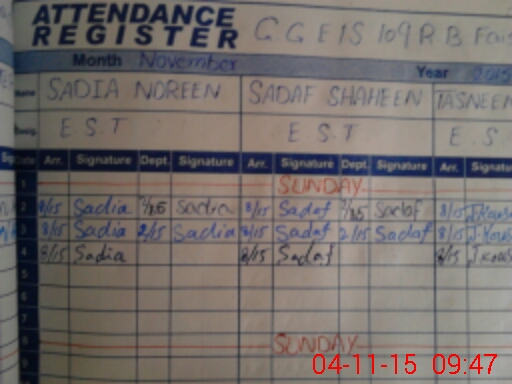 ATTENDANCE
REGISTER
G G E / S 109 R B Fais
Month November
Year 2015
Name SADIA NOREEN SADAF SHAHEEN TASNEEN
Desig. E.S.T E S T E.S
Sig Date Arr. Signature Dept. Signature Arr. Signature Dept. Signature Arr. Signatu
1 SUNDAY
2 8/15 Sadia Sadia 8/15 Sadaf Sadaf 8/15
3 8/15 Sadia 2/15 Sadia 8/15 Sadaf 2/15 Sadaf 8/15
4 8/15 Sadia 8/15 Sadaf 8/15
5
6
7
8 SUNDAY
9
04-11-15 09:47